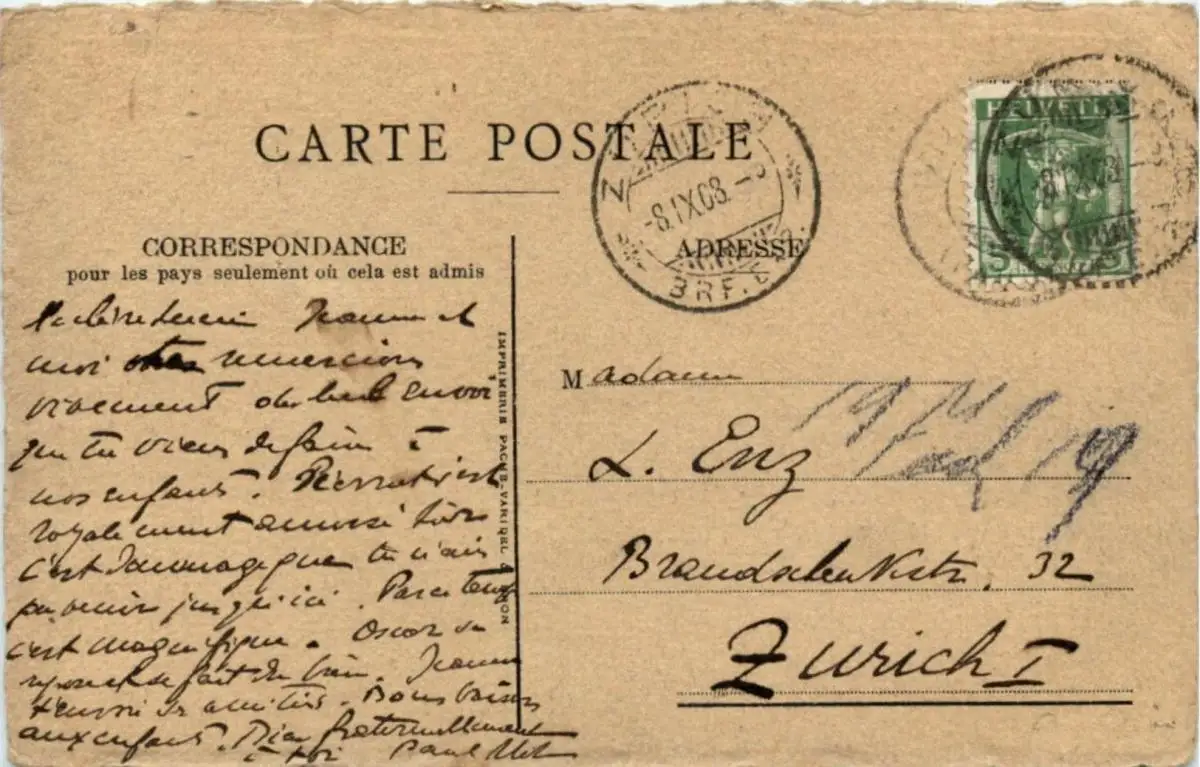 CARTE POSTALE
CORRESPONDANCE
pour les pays seulement où cela est admis
ADRESSE
ZÜRICH
-8.IX.08.-
BRF.
HELVETIA
5 5
Jeanne et
moi remercions
vivement du bel envoi
que tu viens de faire à
nos enfants. Pierrot s'est
royalement amusé hier
c'est dommage que tu n'aies
pu venir jusqu'ici. Par ce temps
c'est magnifique. Oscar se
repose et se fait du bien. Jeanne
t'envoie ses amitiés. Bons baisers
aux enfants. Bien fraternellement
à toi Paul
IMPRIMERIE PACHE-VARIDEL
Madame
L. Enz
Brandschenkestr. 32
Zürich I